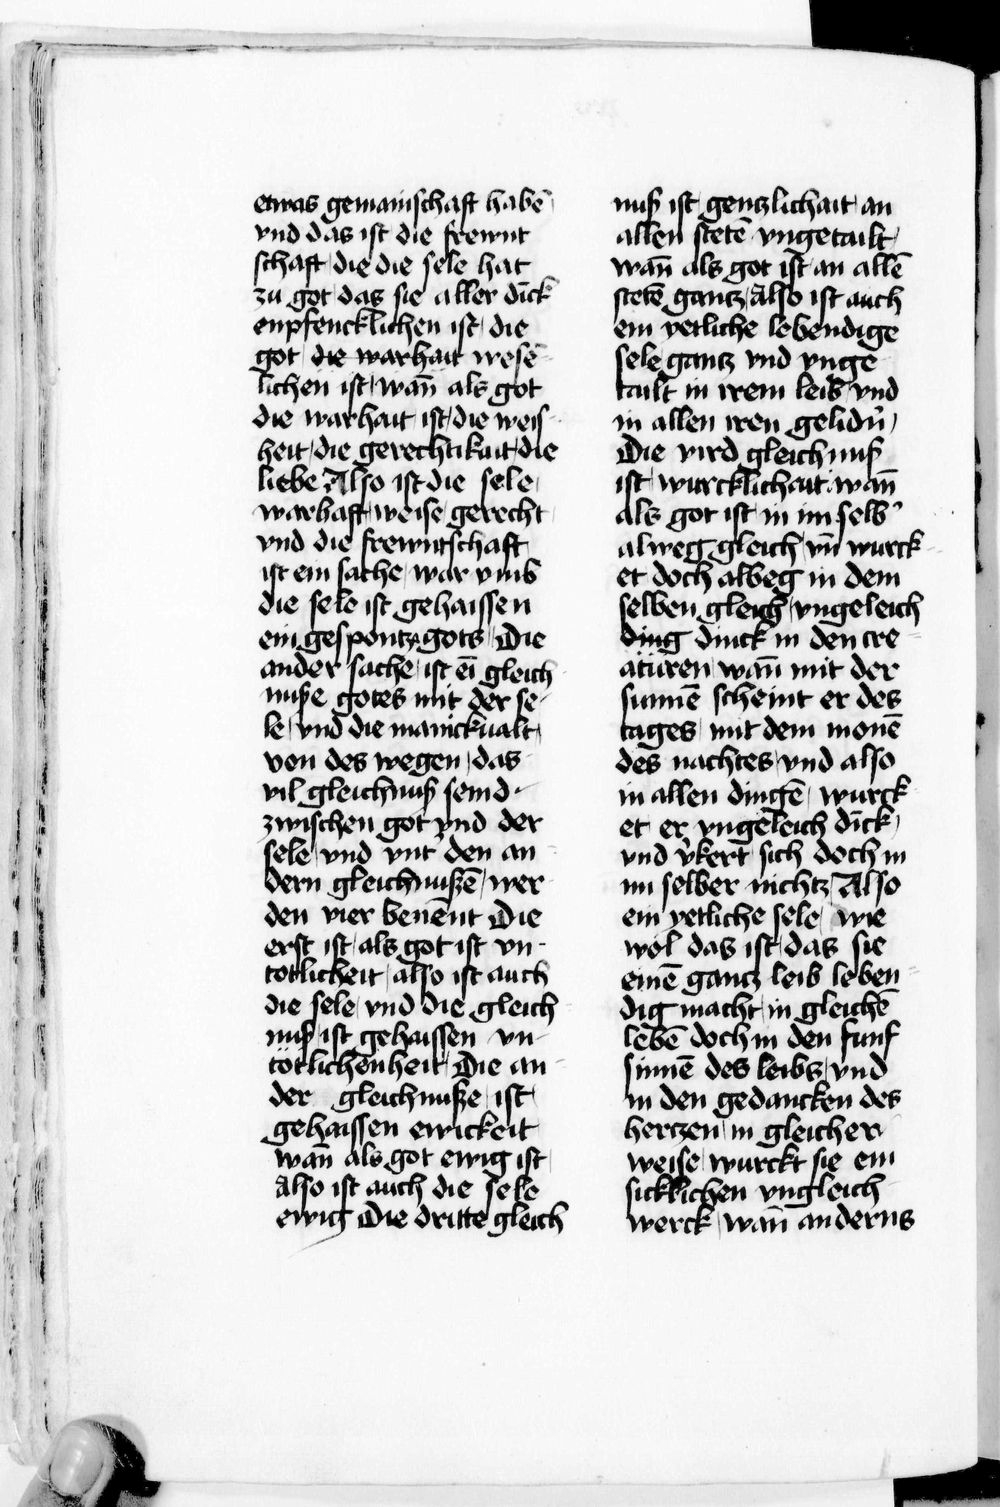 etwas gemainschaft habē
vnd das ist die frewnt
schaft die die sele hat
zu got das sie aller dick
enpfencklichen ist die
got die warhait wesē
lichen ist wan̄ als got
die warhait ist die weis
heit die gerechtikait die
liebe Also ist die sele
warhaft weise gerecht
vnd die frewntschaft
ist ein sache war vmb
die sele ist gehaissen
ein gespontz gots Die
ander sache ist eī gleich
nuße gotes mit der se
le vnd die manickualt
von des wegen das
vil gleichnuß seind
zwischen got vnd der
sele vnd vnt' den an
dern gleichnußē wer
den vier benent Die
erst ist als got ist vn
totlicheit also ist auch
die sele vnd die gleich
nuß ist gehaissen vn
tötlichenheit Die an
der gleichnuße ist
gehaissen ewickeit
wan̄ als got ewig ist
also ist auch die sele
ewig Die dritte gleich
nuß ist gentzlichait an
allen stetē vngetailt
wan̄ als got ist an allē
stetē gantz Also ist auch
ein yetliche lebendige
sele gantz vnd vnge
tailt in irem leib vnd
in allen iren gelidn̄
Die vird gleichnuß
ist wurcklichait wan̄
als got ist in im selb'
alweg gleich vn̄ wurck
et doch albeg in dem
selben gleich vngeleich
ding dinck in den cre
atüren wan̄ mit der
sunnē scheint er des
tages mit dem monē
des nachtes vnd also
in allen dingē wurck
et er vngeleich dīck
vnd v'kert sich doch in
im selber nichtz Also
ein yetliche sele wie
wol das ist das sie
einē gantz leib leben
dig macht in gleichē
lebē doch in den funf
sinnē des leibs vnd
in den gedancken des
hertzen in gleicher
weise wurckt sie ein
sicklichen vngleich
werck wan̄ anderns